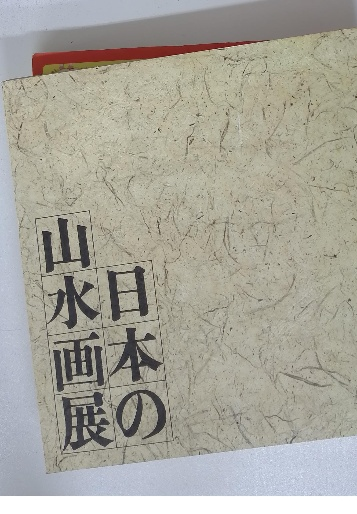 日本の
山水画展